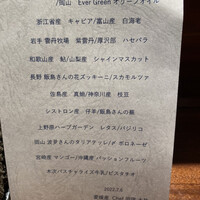 /岡山 Ever Green オリーブオイル
浙江省産 キャビア/富山産 白海老
岩手 雲丹牧場 紫雲丹/厚沢部 ハセパラ
和歌山産 鮎/山梨産 シャインマスカット
長野 飯島さんの花ズッキーニ/スカモルツァ
徳島産 真鯛/神奈川産 枝豆
シストロン産 仔羊/飯島さんの籠
上野原ハーブガーデン レタス/バジリコ
岡山 波夛さんのタリアテッレ/ ボロネーゼ
宮崎産 マンゴー/沖縄産 パッションフルーツ
木次パスチャライズ牛乳/ピスタチオ
2022.7.6